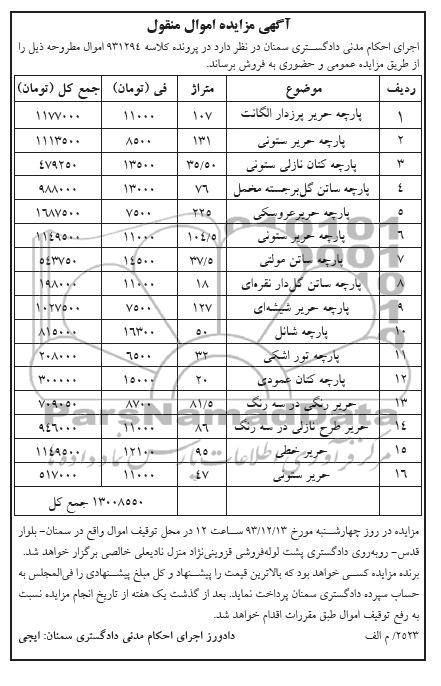 آگهی مزایده اموال منقول
اجرای احکام مدنی دادگستری سمنان در نظر دارد در پرونده کلاسه ۹۳۱۲۹۴ اموال مطروحه ذیل را
از طریق مزایده عمومی و حضوری به فروش برساند.
ردیف موضوع متراژ فی (تومان) جمع کل (تومان)
۱ پارچه حریر پرزدار الگانت ۱۰۷ ۱۱۰۰۰ ۱۱۷۷۰۰۰
۲ پارچه حریر ستونی ۱۳۱ ۸۵۰۰ ۱۱۱۳۵۰۰
۳ پارچه کتان نازلی ستونی ۳۵/۵۰ ۱۳۵۰۰ ۴۷۹۲۵۰
۴ پارچه ساتن گل‌برجسته مخمل ۷۶ ۱۳۰۰۰ ۹۸۸۰۰۰
۵ پارچه حریرعروسکی ۲۲۵ ۷۵۰۰ ۱۶۸۷۵۰۰
۶ پارچه حریر ستونی ۱۰۴/۵ ۱۱۰۰۰ ۱۱۴۹۵۰۰
۷ پارچه ساتن مولتی ۳۷/۵ ۱۴۵۰۰ ۵۴۳۷۵۰
۸ پارچه ساتن گل‌دار نقره‌ای ۱۸ ۱۱۰۰۰ ۱۹۸۰۰۰
۹ پارچه حریر شیشه‌ای ۱۲۷ ۷۵۰۰ ۱۰۲۷۵۰۰
۱۰ پارچه شانل ۵۰ ۱۶۳۰۰ ۸۱۵۰۰۰
۱۱ پارچه تور اشکی ۳۲ ۶۵۰۰ ۲۰۸۰۰۰
۱۲ پارچه کتان عمودی ۲۰ ۱۵۰۰۰ ۳۰۰۰۰۰
۱۳ حریر رنگی در سه رنگ ۸۱/۵ ۸۷۰۰ ۷۰۹۰۵۰
۱۴ حریر طرح نازلی در سه رنگ ۸۶ ۱۱۰۰۰ ۹۴۶۰۰۰
۱۵ حریر خطی ۹۵ ۱۲۱۰۰ ۱۱۴۹۵۰۰
۱۶ حریر ستونی ۴۷ ۱۱۰۰۰ ۵۱۷۰۰۰
۱۳۰۰۸۵۵۰ جمع کل
مزایده در روز چهارشنبه مورخ ۹۳/۱۲/۱۳ ساعت ۱۲ در محل توقیف اموال واقع در سمنان- بلوار
قدس- روبه‌روی دادگستری پشت لوله‌فروشی قزوینی‌نژاد منزل نادیعلی خالصی برگزار خواهد شد.
برنده مزایده کسی خواهد بود که بالاترین قیمت را پیشنهاد و کل مبلغ پیشنهادی را فی‌المجلس به
حساب سپرده دادگستری سمنان پرداخت نماید. بعد از گذشت یک هفته از تاریخ انجام مزایده نسبت
به رفع توقیف اموال طبق مقررات اقدام خواهد شد.
۲۵۲۳/ م الف دادورز اجرای احکام مدنی دادگستری سمنان: ایچی
ParsNamadData